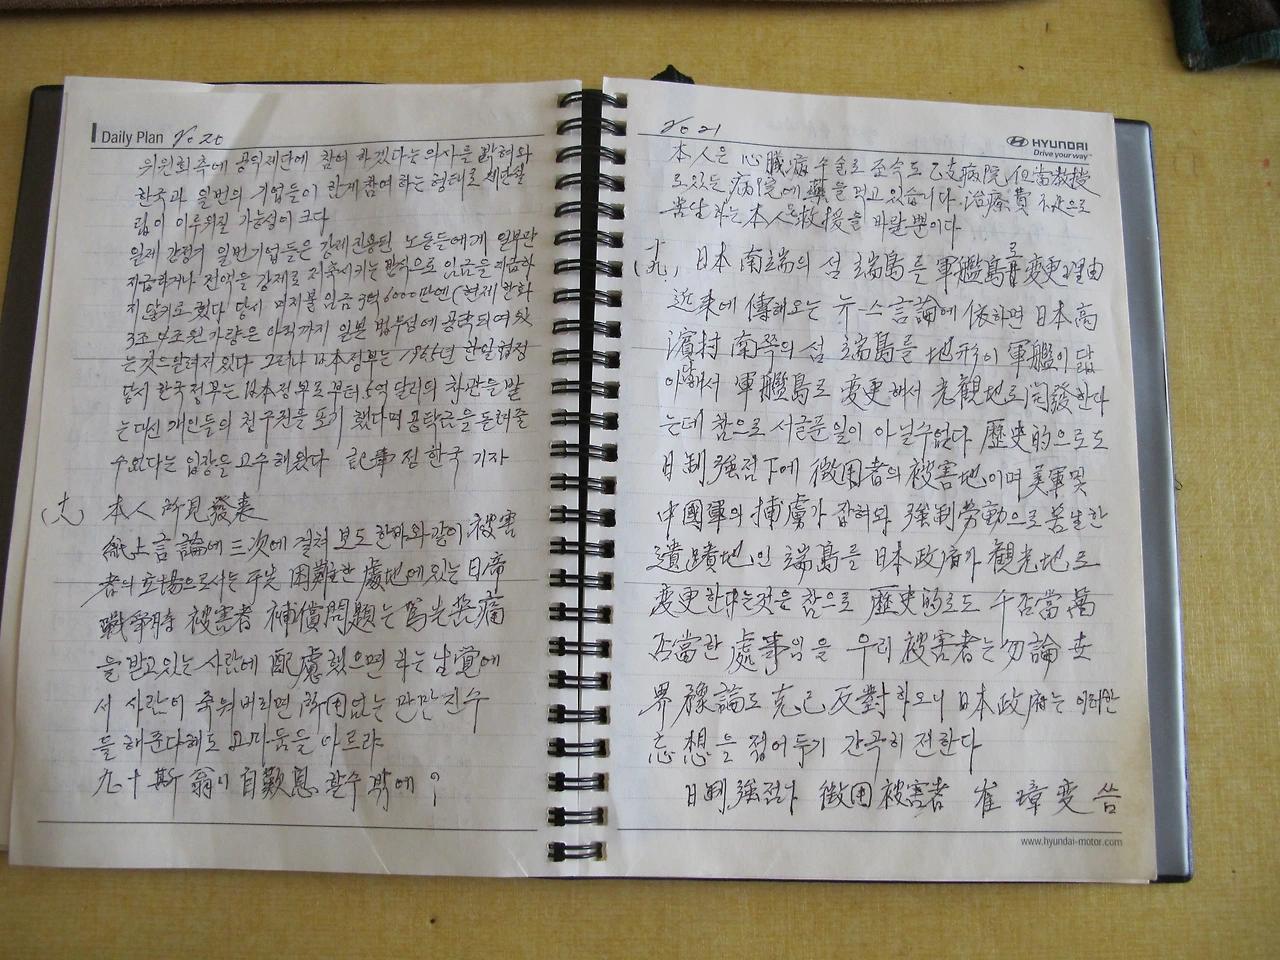 Daily Plan No 20
위원회측에 공익재단에 참여 하겠다는 의사를 밝혀와
한국과 일번의 기업들이 함게 참여 하는 형태로 재단설
립이 이루워질 가능성이 크다
일제 강점기 일번기업들은 강제진용된 노동들에게 일부만
지급하거나 전액을 강제로 저축시키는 방식으로 임금을 지급하
지 않키로 했다 당시 미지불 임금 3억6000만엔(현제 한화
3조 4조원 가량은 아직까지 일본 법무성에 공탁되여 있
는것으로 알려저있다 그러나 日本정부는 1965년 한일협정
당시 한국정부는 日本정부로부터 5억 달러의 차관을 받
는 대신 개인들의 청구권을 포기 했다며 공탁금을 돌려줄
수 없다는 입장을 고수해왔다 記事 점한국 기자
(十八) 本人 所見發表
紙上言論에 三次에 걸쳐 보도 한바와같이 被害
者의 立場으로서는 困難한 處地에 있는 日帝
戰爭時 被害者 補償問題는 苦痛
을 받고있는 사람에 配慮했으면 하는 生覺에
서 사람이 죽워버리면 所用없는 만만진수
를 해준다해도 고마움을 아르랴
九十斯翁이 自歎息 할수 밖에 ?
No 21
HYUNDAI
Drive your way
本人은 心臟病 수술로 乙支病院 但當敎授
로있는 病院에 藥을 먹고 있습니다 治療費 不足으로
苦生하는 本人은 救援을 바랄뿐이다
(十九) 日本 南端의 섬 端島를 軍艦島로 變更 理由
近來에 傳해오는 뉴-스 言論에 依하면 日本高
濱村 南쪽의 섬 端島를 地形이 軍艦이 닮
아 해서 軍艦島로 變更해서 光觀地로 開發한다
는데 참으로 서글픈일이 아닐수없다 歷史的으로도
日制强점下에 徵用者의 被害地이며 美軍및
中國軍의 捕虜가 잡혀와 强制勞動으로 苦生한
遺蹟地인 端島를 日本政府가 観光地로
変更한다는것은 참으로 歷史的로도 千否當萬
否當한 處事임을 우리 被害者는 勿論 世
界 豫論도 克己 反對 하오니 日本政府는 이러한
忘想을 접어두기 간곡히 전한다
日制强점下 徵用被害者 崔璋燮 씀
www.hyundai-motor.com